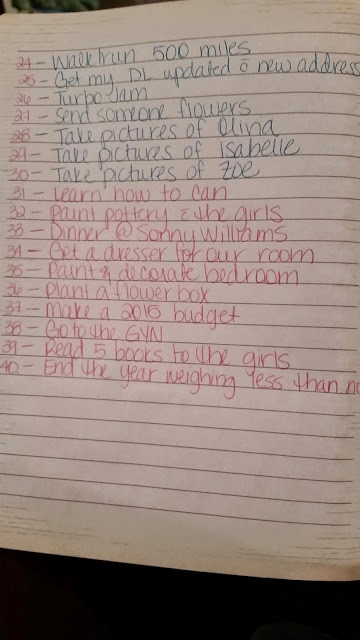 24 - Walk/run 500 miles
25 - Get my DL updated c̄ new address
26 - Turbo Jam
27 - Send someone flowers
28 - Take pictures of Alina
29 - Take pictures of Isabelle
30 - Take pictures of Zoe
31 - Learn how to can
32 - Paint pottery c̄ the girls
33 - Dinner @ Sonny Williams
34 - Get a dresser for our room
35 - Paint & decorate bedroom
36 - Plant a flower box
37 - Make a 2016 budget
38 - Go to the GYN
39 - Read 5 books to the girls
40 - End the year weighing less than